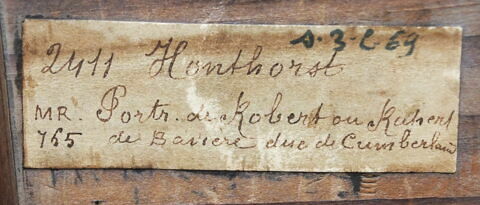 2411 Honthorst s.3-C 69
MR. Portr. de Robert ou Rupert
755 de Baviere duc de Cumberland